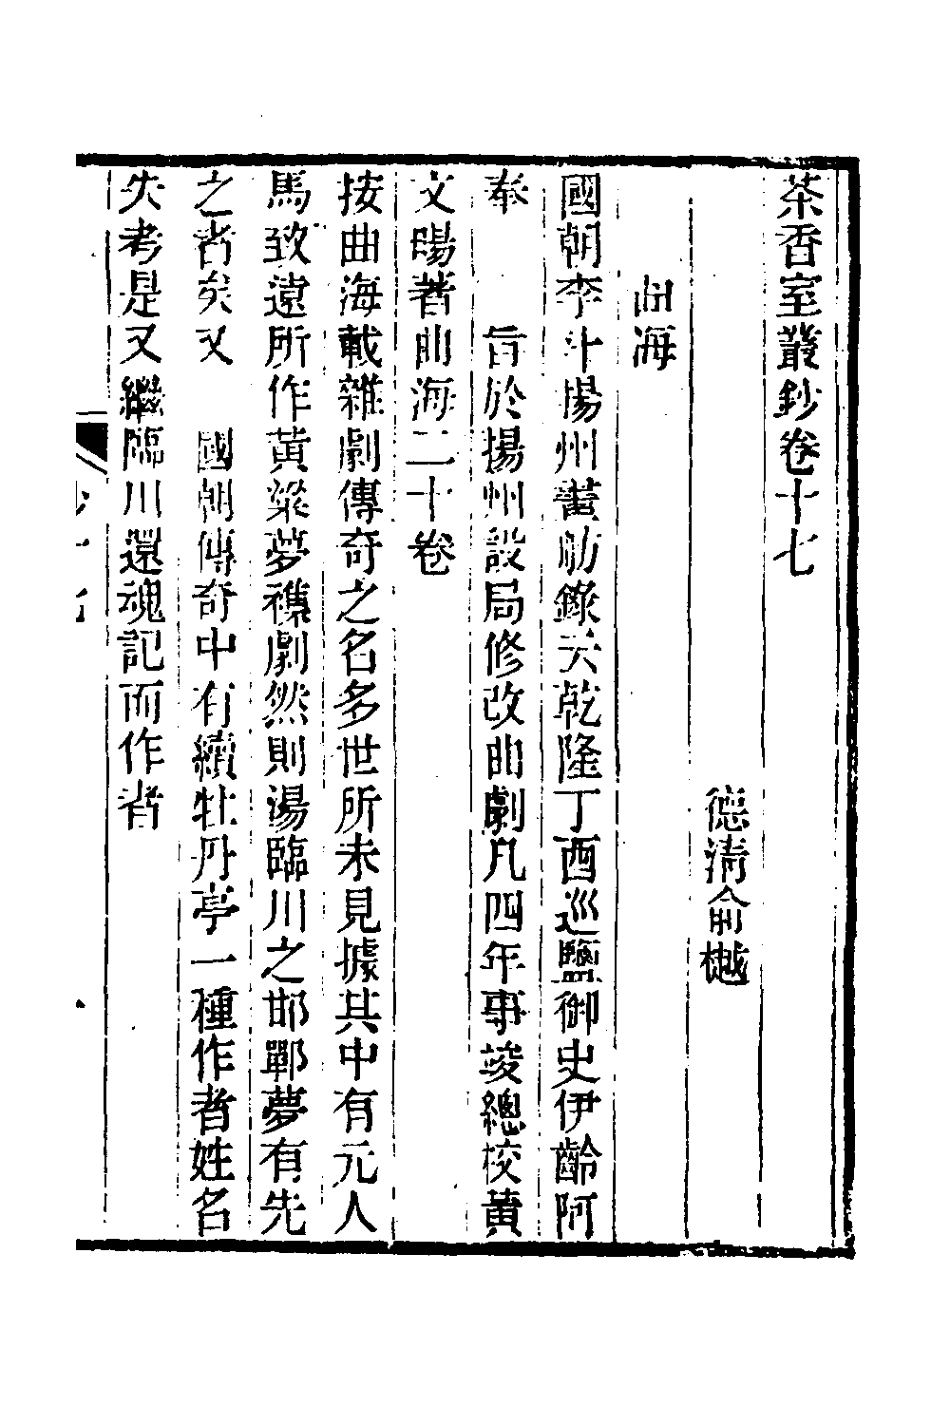 茶香室叢鈔卷十七
德清俞樾
曲海
國朝李斗揚州畫舫錄云乾隆丁酉巡鹽御史伊齡阿
奉　旨於揚州設局修改曲劇凡四年事竣總校黃
文暘著曲海二十卷
按曲海載雜劇傳奇之名多世所未見據其中有元人
馬致遠所作黃粱夢襍劇然則湯臨川之邯鄲夢有先
之者矣又　國朝傳奇中有續牡丹亭一種作者姓名
失考是又繼臨川還魂記而作者